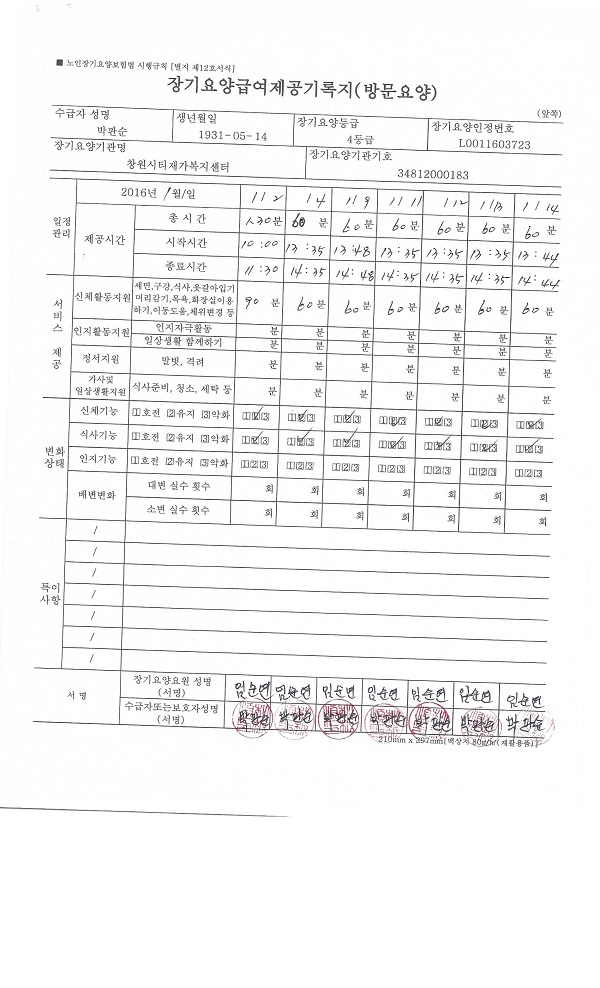 ■ 노인장기요양보험법 시행규칙 [별지 제12호서식]
장기요양급여제공기록지(방문요양)
(앞쪽)
수급자 성명 생년월일 장기요양등급 장기요양인정번호
박판순 1931-05-14 4등급 L0011603723
장기요양기관명 장기요양기관기호
창원시티재가복지센터 34812000183
일정관리
2016년 1월/일 1/2 1/4 1/9 1/11 1/12 1/13 1/14
제공시간
총 시간 30분 60 분 60분 60 분 60 분 60 분 60 분
시작시간 10:00 13:35 13:48 13:35 13:35 13:35 13:44
종료시간 11:30 14:35 14:48 14:35 14:35 14:35 14:44
서비스 제공
신체활동지원 세면,구강,식사,옷갈아입기 머리감기,목욕,화장실이용하기,이동도움,체위변경 등 90 분 60분 60분 60 분 60 분 60 분 60 분
인지활동지원 인지자극활동 분 분 분 분 분 분 분
일상생활 함께하기 분 분 분 분 분 분 분
정서지원 말벗, 격려 분 분 분 분 분 분 분
가사및 일상생활지원 식사준비, 청소, 세탁 등 분 분 분 분 분 분 분
변화상태
신체기능 1호전 2유지 3악화 123 123 123 123 123 123 123
식사기능 1호전 2유지 3악화 123 123 123 123 123 123 123
인지기능 1호전 2유지 3악화 123 123 123 123 123 123 123
배변변화
대변 실수 횟수 회 회 회 회 회 회 회
소변 실수 횟수 회 회 회 회 회 회 회
특이사항
/
/
/
/
/
/
/
서 명
장기요양요원 성명 (서명) 임순연 임순연 임순연 임순연 임순연 임순연 임순연
수급자또는보호자성명 (서명) 박판순 박판순 박판순 박판순 박판순 박판순 박판순
210mm x 297mm[백상지 80g/㎡(재활용품)]